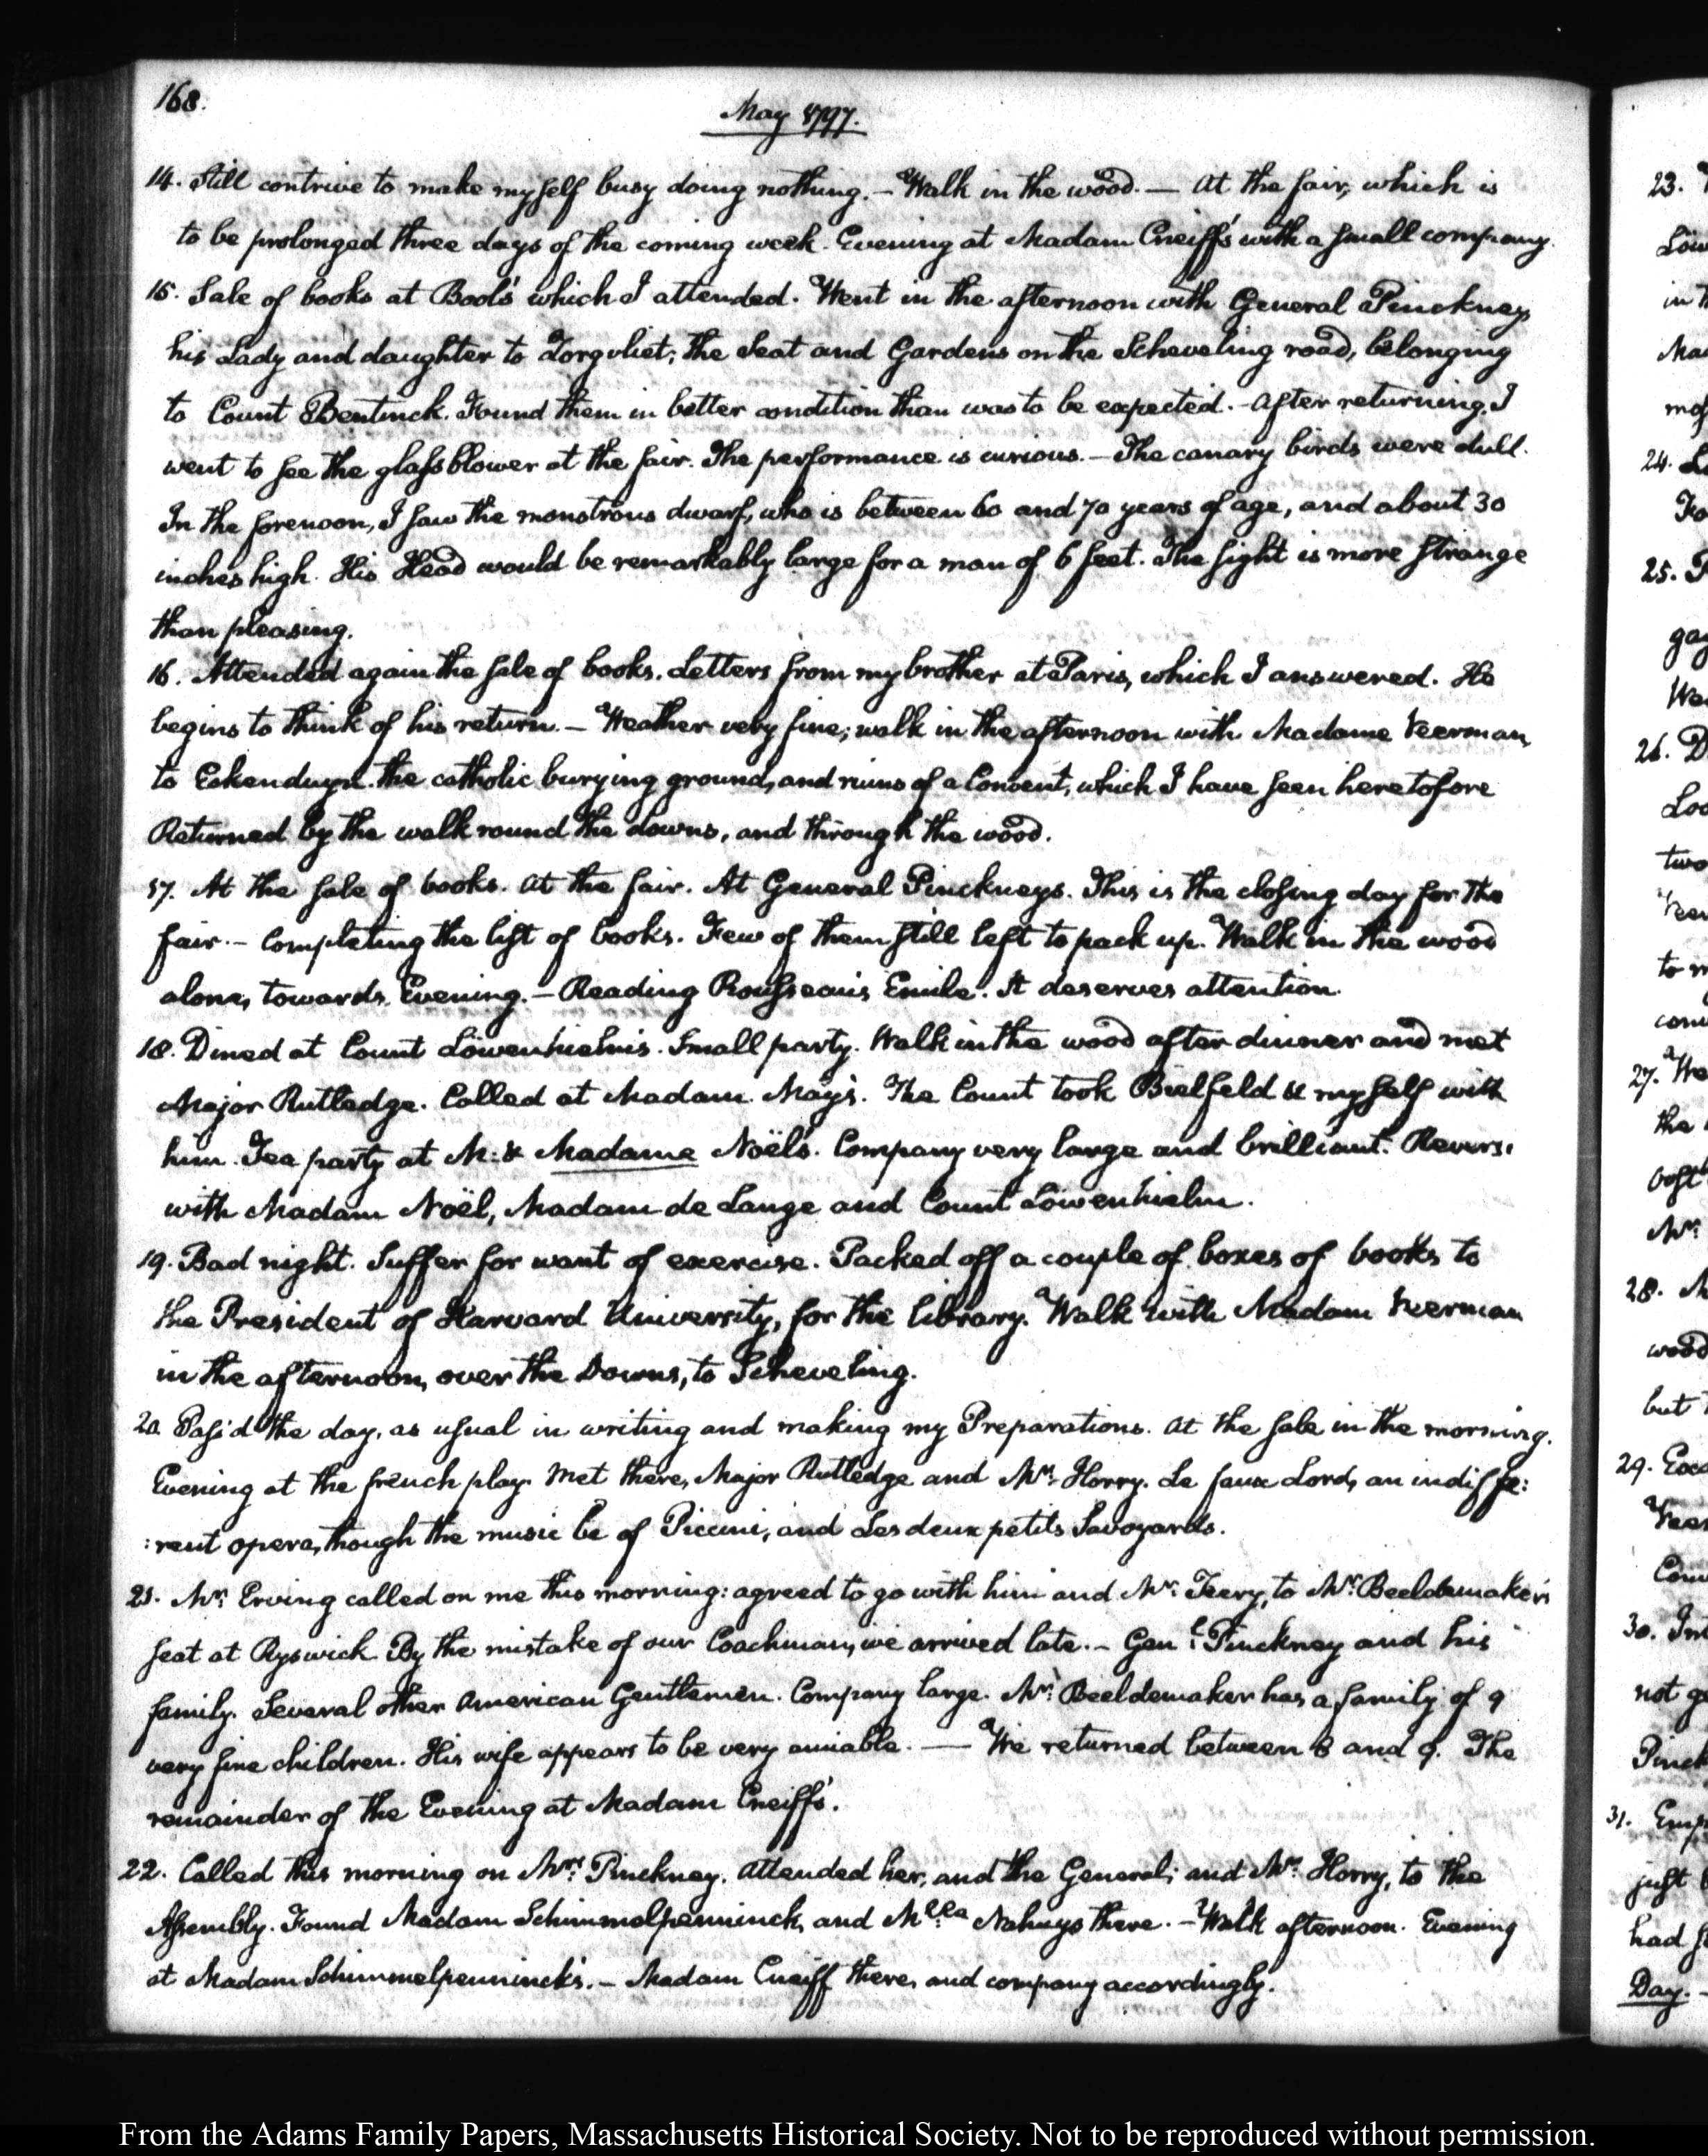 168.
May 1797.
14. Still contrive to make myself busy doing nothing. – Walk in the wood. — At the fair, which is
to be prolonged three days of the coming week. Evening at Madam Cneiff's with a small company.
15. Sale of books at Bool's which I attended. Went in the afternoon with General Pinckney,
his Lady and daughter to Zorgvliet; the Seat and Gardens on the Scheveling road, belonging
to Count Bentinck. Found them in better condition than was to be expected. – After returning, I
went to see the glass blower at the fair. The performance is curious. – The canary birds were dull.
In the forenoon, I saw the monstrous dwarf, who is between 60 and 70 years of age, and about 30
inches high. His Head would be remarkably large for a man of 6 feet. The sight is more strange
than pleasing.
16. Attended again the sale of books. Letters from my brother at Paris, which I answered. He
begins to think of his return. – Weather very fine; walk in the afternoon with Madame Veerman,
to Eikenduyn. the catholic burying ground, and ruins of a Convent, which I have seen heretofore
Returned by the walk round the downs, and through the wood.
17. At the sale of books. At the fair. At General Pinckneys. This is the closing day for the
fair. – Completing the list of books. Few of them still left to pack up. Walk in the wood
alone, towards Evening. – Reading Rousseau's Emile. It deserves attention.
18. Dined at Count Löwenhielm's. Small party. Walk in the wood after dinner and met
Major Rutledge. Called at Madam May's. The Count took Bielfeld & myself with
him. Tea party at M: & Madame Noël's. Company very large and brilliant. Reversi
with Madam Noël, Madam de Lange and Count Löwenhielm.
19. Bad night. Suffer for want of exercise. Packed off a couple of boxes of books to
the President of Harvard University, for the library. Walk with Madam Veerman
in the afternoon, over the Downs, to Scheveling.
20. Pass'd the day, as usual in writing and making my Preparations. At the sale in the morning.
Evening at the french play. Met there, Major Rutledge and Mr: Horry. Le faux Lord, an indiffe:
:rent opera, though the music be of Piccini, and Les deux petits Savoyards.
21. Mr: Erving called on me this morning: agreed to go with him and Mr: Terry, to Mr: Beeldemaker's
seat at Ryswick. By the mistake of our Coachman, we arrived late. – Genl: Pinckney and his
family. Several other American Gentlemen. Company large. Mr: Beeldemaker has a family of 9
very fine children. His wife appears to be very amiable. — We returned between 8 and 9. The
remainder of the Evening at Madam Cneiff's.
22. Called this morning on Mrs: Pinckney. Attended her, and the General, and Mr: Horry, to the
Assembly. Found Madam Schimmelpenninck, and Mlle Nahuys there. – Walk afternoon. Evening
at Madam Schimmelpenninck's. – Madam Cneiff there, and company accordingly.
From the Adams Family Papers, Massachusetts Historical Society. Not to be reproduced without permission.